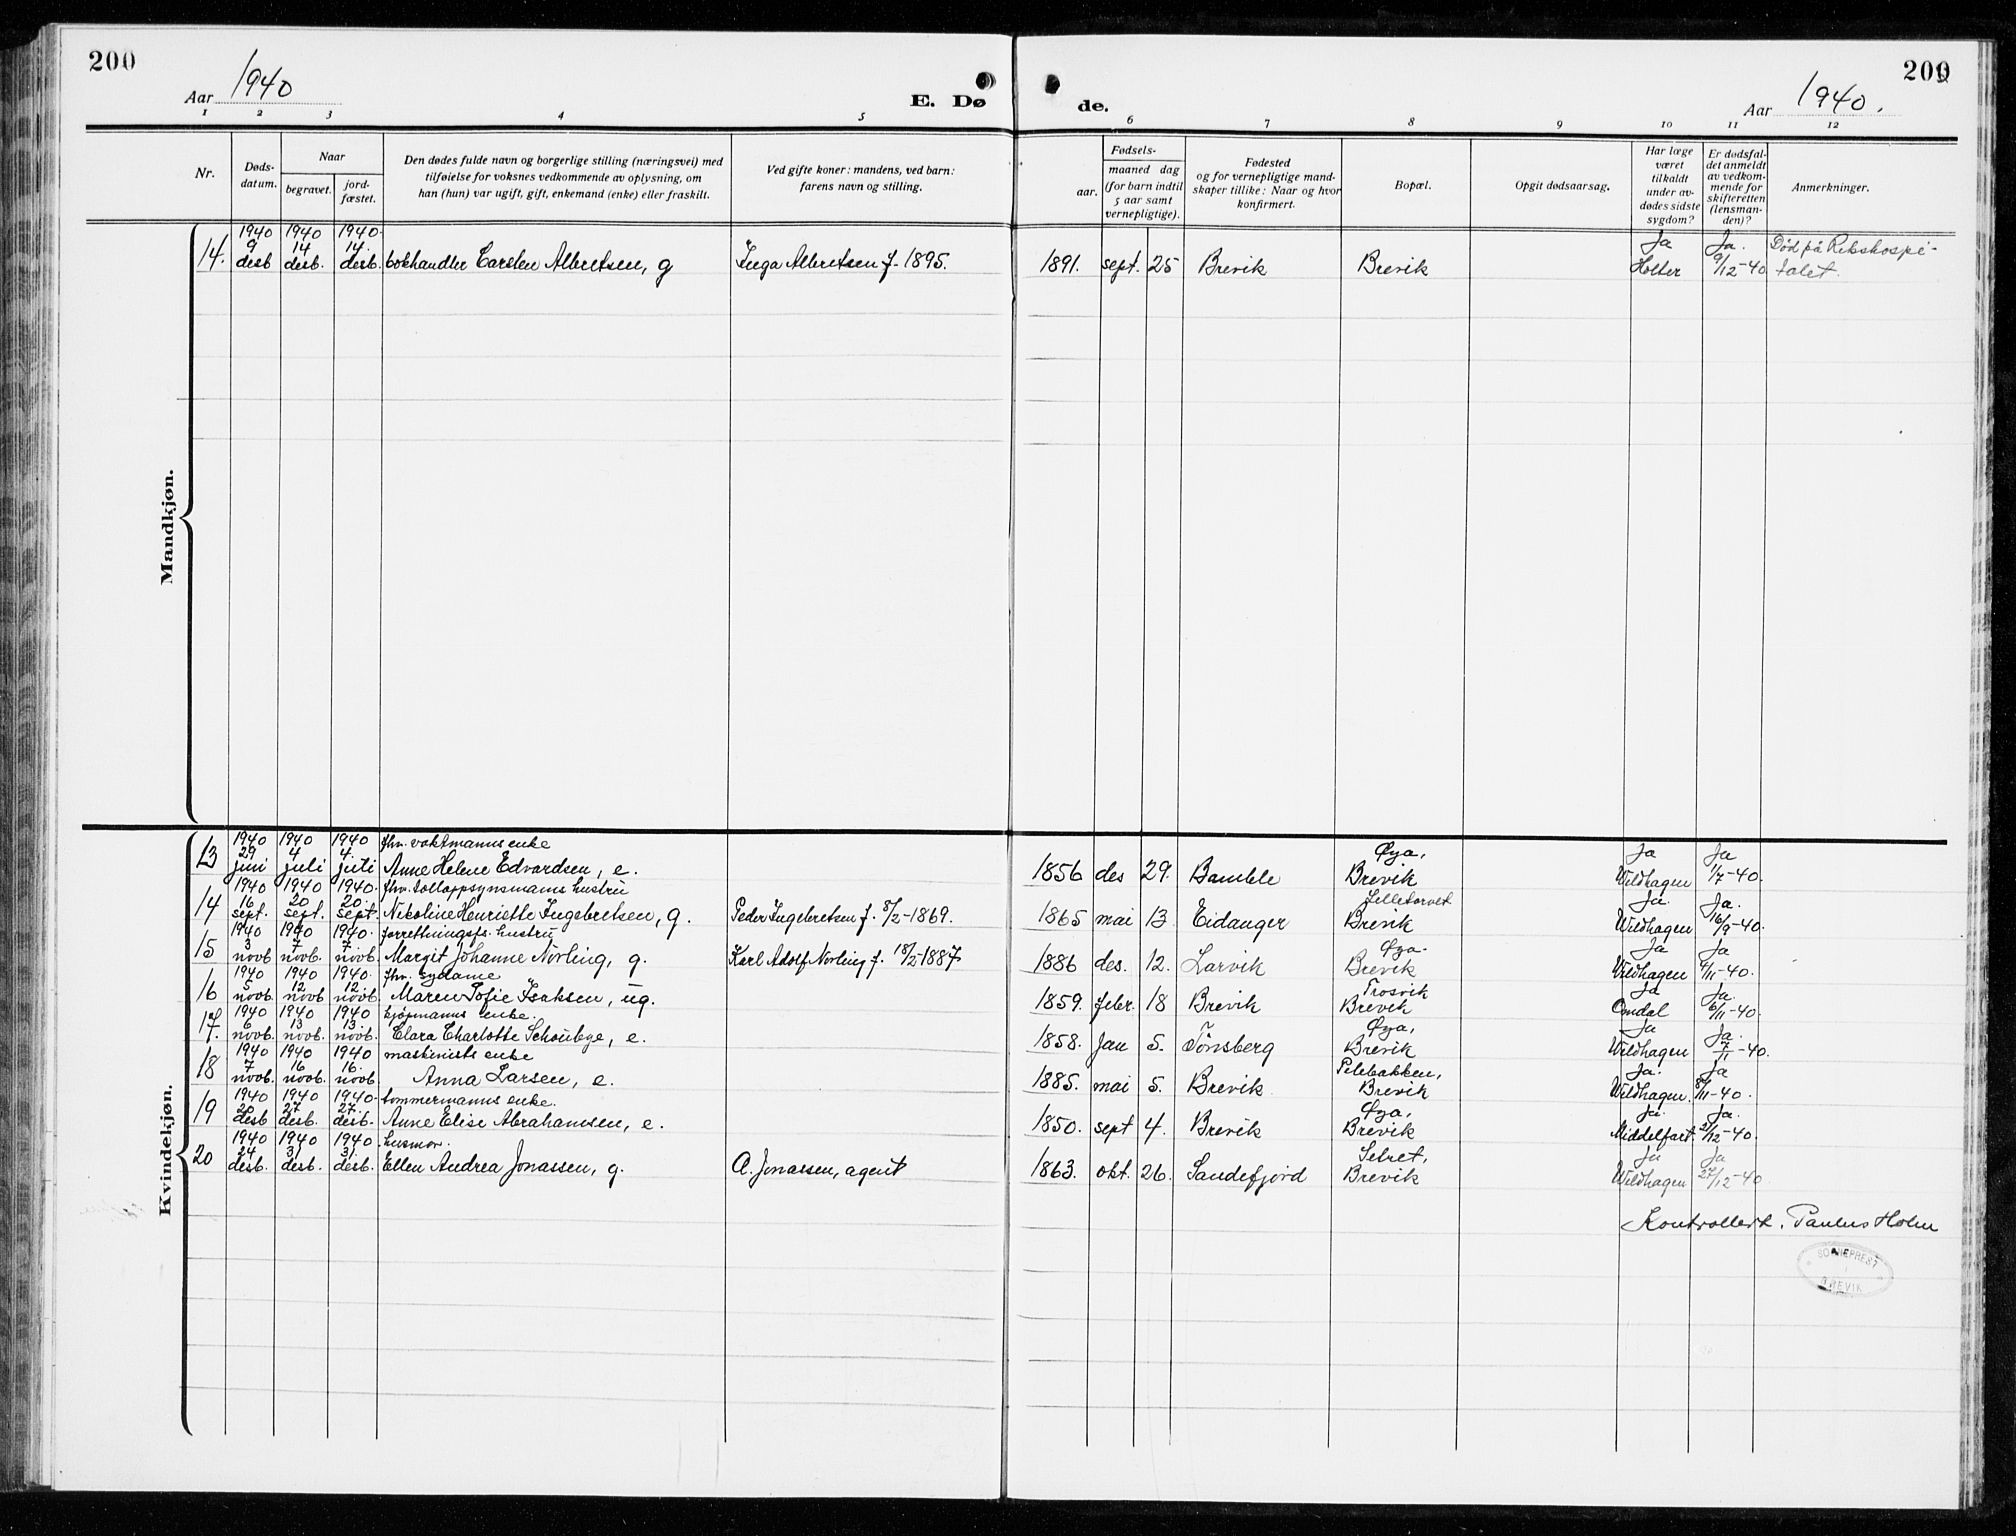 200
Aar 1940
E. Dø
de.
Aar 1940.
200
1 2 3 4 5 6 7 8 9 10 11 12
Nr.
Døds-
datum.
Naar
begravet.
jord-
fæstet.
Den dødes fulde navn og borgerlige stilling (næringsvei) med
tilføielse for voksnes vedkommende av oplysning, om
han (hun) var ugift, gift, enkemand (enke) eller fraskilt.
Ved gifte koner: mandens, ved barn:
farens navn og stilling.
Fødsels-
aar.
maaned dag
(for barn indtil
5 aar samt
vernepligtige).
Fødested
og for vernepligtige mand-
skaper tillike: Naar og hvor
konfirmert.
Bopæl.
Opgit dødsaarsag.
Har læge
været
tilkaldt
under av-
dødes sidste
sygdom?
Er dødsfal-
det anmeldt
av vedkom-
mende for
skifteretten
(lensman-
den)?
Anmerkninger.
Mandkjøn.
1940 1940 1940
9 14 14. Ja Ja. Død på Rikshospi-
14. desb desb. desb. bokhandler Carsten Albretsen, g Inga Albretsen f. 1895. 1891. sept. 25 Brevik Brevik Holter 9/12-40 talet.
Kvindekjøn.
1940 1940 1940 fhv. vaktmanns enke
29 4 4. Øya, Ja Ja
13 juni juli juli Anne Helene Edvardsen, e. 1856 des 29. Bamble Brevik Wildhagen 1/7-40.
1940 1940 1940. fhv. tolloppsynsmanns hustru
16 20 20. Lilletorvet Ja. Ja.
14 sept. sept. sept. Nikoline Henriette Ingebretsen, g. Peder Ingebretsen f. 8/2-1869. 1865 mai 13 Eidanger Brevik Wildhagen 16/9-40.
1940 1940 1940. forretningsf. hustru
3 7 7. Øya. Ja Ja
15 novb novb. novb. Margit Johanne Norling, g. Karl Adolf Norling f. 18/2-1887 1886 des. 12. Larvik Brevik Wildhagen 4/11-40.
1940 1940 1940. fhv. sydame
5 12 12. Trosvik Ja Ja.
16 novb. novb novb. Maren Sofie Isaksen, ug. 1859. febr. 18 Brevik Brevik Omdal 6/11-40.
1940 1940 1940. kjøpmanns enke.
6 13 13. Øya, Ja Ja.
17. novb. novb. novb. Clara Charlotte Schoubye, e. 1858. Jan 5. Tønsberg Brevik Wildhagen 7/11-40.
1940 1940 1940 maskinists enke
7 16 16. Pilebakken, Ja. Ja
18 novb. novb. novb. Anna Larsen, e. 1885. mai 5. Brevik Brevik Wildhagen. 8/11-40.
1940 1940 1940. tømmermanns enke.
20 27 27. Øya, Ja. Ja.
19 desb desb. desb. Anne Elise Abrahamsen, e. 1850. sept 4. Brevik Brevik Middelfart. 21/12-40.
1940 1940 1940. husmor.
24 31 31. Setret, Ja Ja
20 desb. desb. desb. Ellen Andrea Jonassen, g. A. Jonassen, agent 1863. okt. 26. Sandefjord Brevik Wildhagen 27/12-40.
Kontrollert. Paulus Holm
SOGNEPREST
I
BREVIK